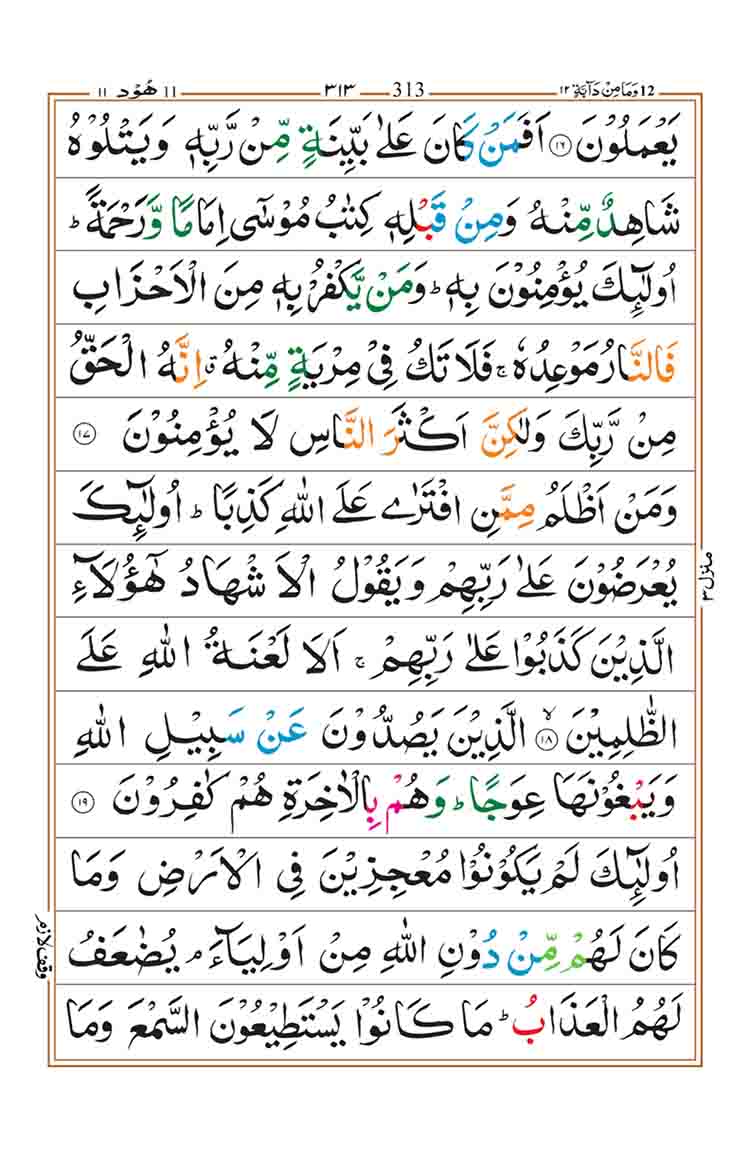 ١١ هُوْد 11 ٣١٣ 313 12 وَمَا مِنْ دَآبَّةٍ ١٢
يَعْمَلُوْنَ ۝١٦ اَفَمَنْ كَانَ عَلٰى بَيِّنَةٍ مِّنْ رَّبِّهٖ وَيَتْلُوْهُ
شَاهِدٌ مِّنْهُ وَمِنْ قَبْلِهٖ كِتٰبُ مُوْسٰٓى اِمَامًا وَّرَحْمَةً ؕ
اُولٰٓئِكَ يُؤْمِنُوْنَ بِهٖ ؕ وَمَنْ يَّكْفُرْ بِهٖ مِنَ الْاَحْزَابِ
فَالنَّارُ مَوْعِدُهٗ ۚ فَلَا تَكُ فِيْ مِرْيَةٍ مِّنْهُ ۗ اِنَّهُ الْحَقُّ
مِنْ رَّبِّكَ وَلٰكِنَّ اَكْثَرَ النَّاسِ لَا يُؤْمِنُوْنَ ۝١٧
وَمَنْ اَظْلَمُ مِمَّنِ افْتَرٰى عَلَى اللهِ كَذِبًا ؕ اُولٰٓئِكَ
يُعْرَضُوْنَ عَلٰى رَبِّهِمْ وَيَقُوْلُ الْاَشْهَادُ هٰٓؤُلَآءِ
الَّذِيْنَ كَذَبُوْا عَلٰى رَبِّهِمْ ۚ اَلَا لَعْنَةُ اللهِ عَلَى
الظّٰلِمِيْنَ ۝١٨ۙ الَّذِيْنَ يَصُدُّوْنَ عَنْ سَبِيْلِ اللهِ
وَيَبْغُوْنَهَا عِوَجًا ؕ وَهُمْ بِالْاٰخِرَةِ هُمْ كٰفِرُوْنَ ۝١٩
اُولٰٓئِكَ لَمْ يَكُوْنُوْا مُعْجِزِيْنَ فِى الْاَرْضِ وَمَا
كَانَ لَهُمْ مِّنْ دُوْنِ اللهِ مِنْ اَوْلِيَآءَ ۘ يُضٰعَفُ
لَهُمُ الْعَذَابُ ؕ مَا كَانُوْا يَسْتَطِيْعُوْنَ السَّمْعَ وَمَا
منزل ٣
وقف لازم